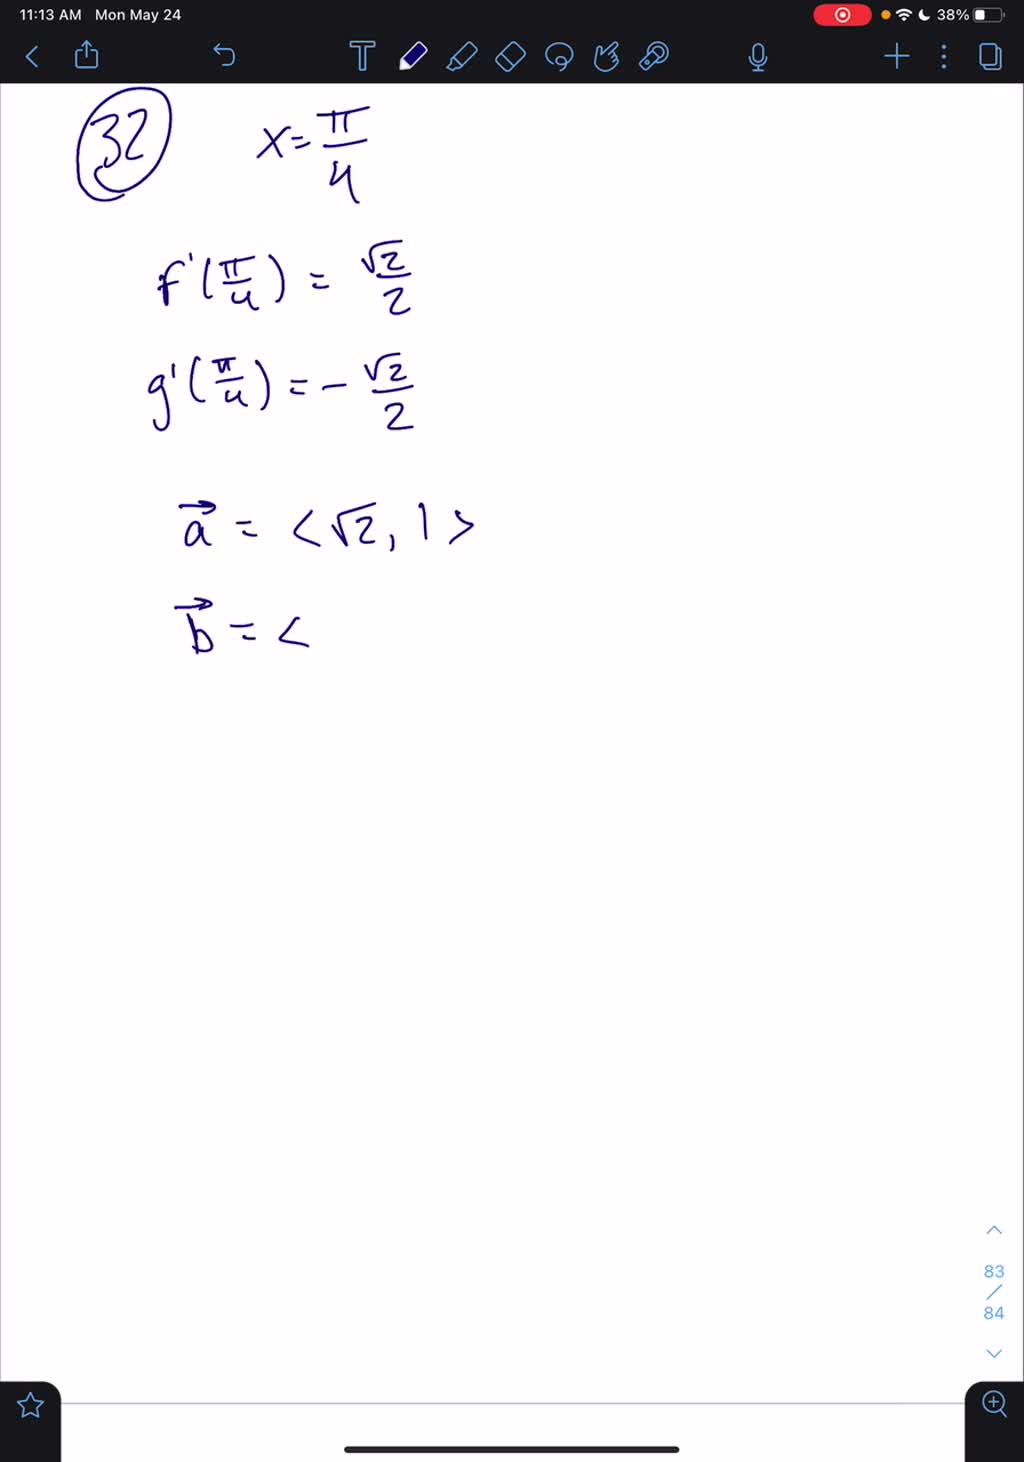 11:13 AM Mon May 24 38%
T
32 x = π/4
f'(π/4) = √2/2
g'(π/4) = - √2/2
a⃗ = < √2, 1 >
b⃗ = <
83
/
84